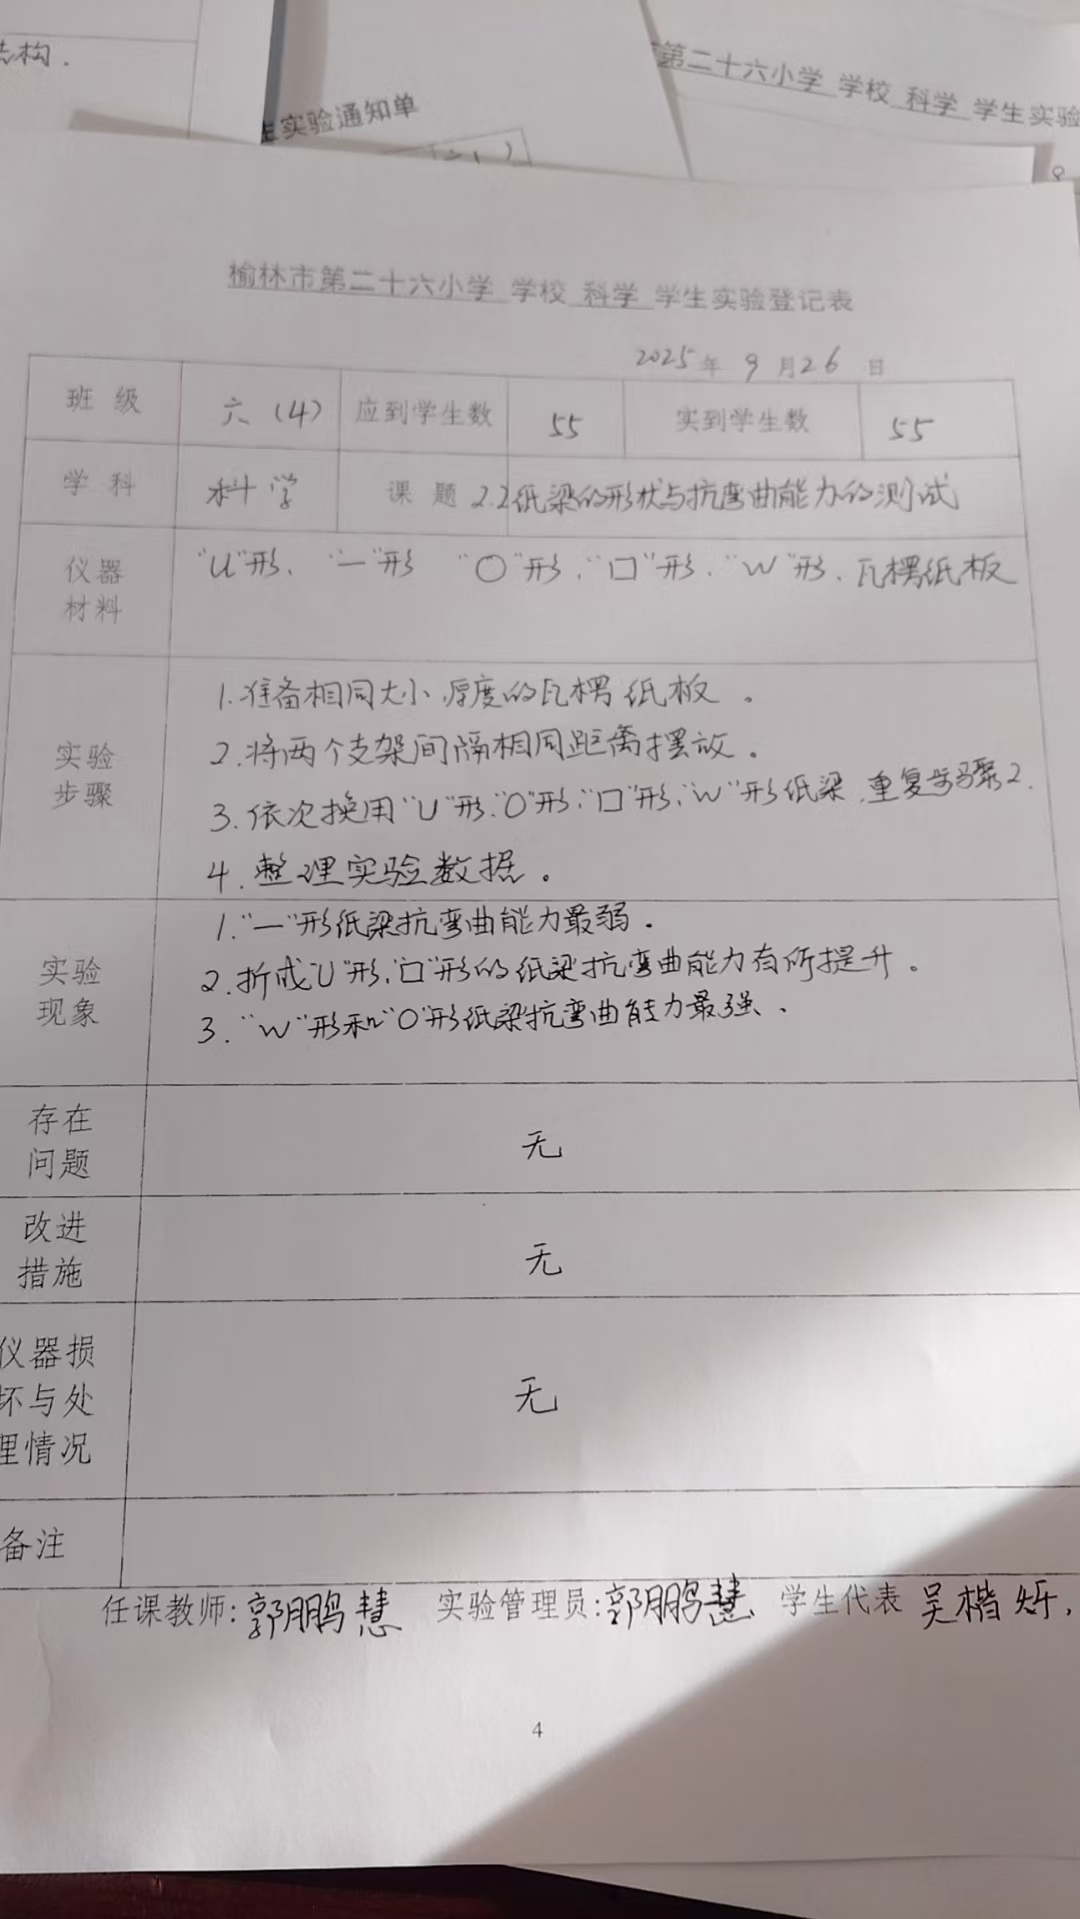 结构.
生实验通知单
第二十六小学 学校 科学 学生实验
榆林市第二十六小学 学校 科学 学生实验登记表
2025年 9 月26 日
班 级 六（4） 应到学生数 55 实到学生数 55
学 科 科学 课 题 2.2纸梁的形状与抗弯曲能力的测试
仪器
材料
“U”形、“一”形 “O”形、“口”形、“W”形、瓦楞纸板
实验
步骤
1.准备相同大小厚度的瓦楞纸板。
2.将两个支架间隔相同距离摆放。
3.依次换用“U”形、“O”形、“口”形、“W”形纸梁,重复步骤2.
4.整理实验数据。
实验
现象
1.“一”形纸梁抗弯曲能力最弱.
2.折成“U”形,“口”形的纸梁抗弯曲能力有所提升。
3.“W”形和“O”形纸梁抗弯曲能力最强、
存在
问题
无
改进
措施
无
仪器损
坏与处
理情况
无
备注
任课教师:郭鹏慧 实验管理员:郭鹏慧 学生代表 吴楷妍,
4